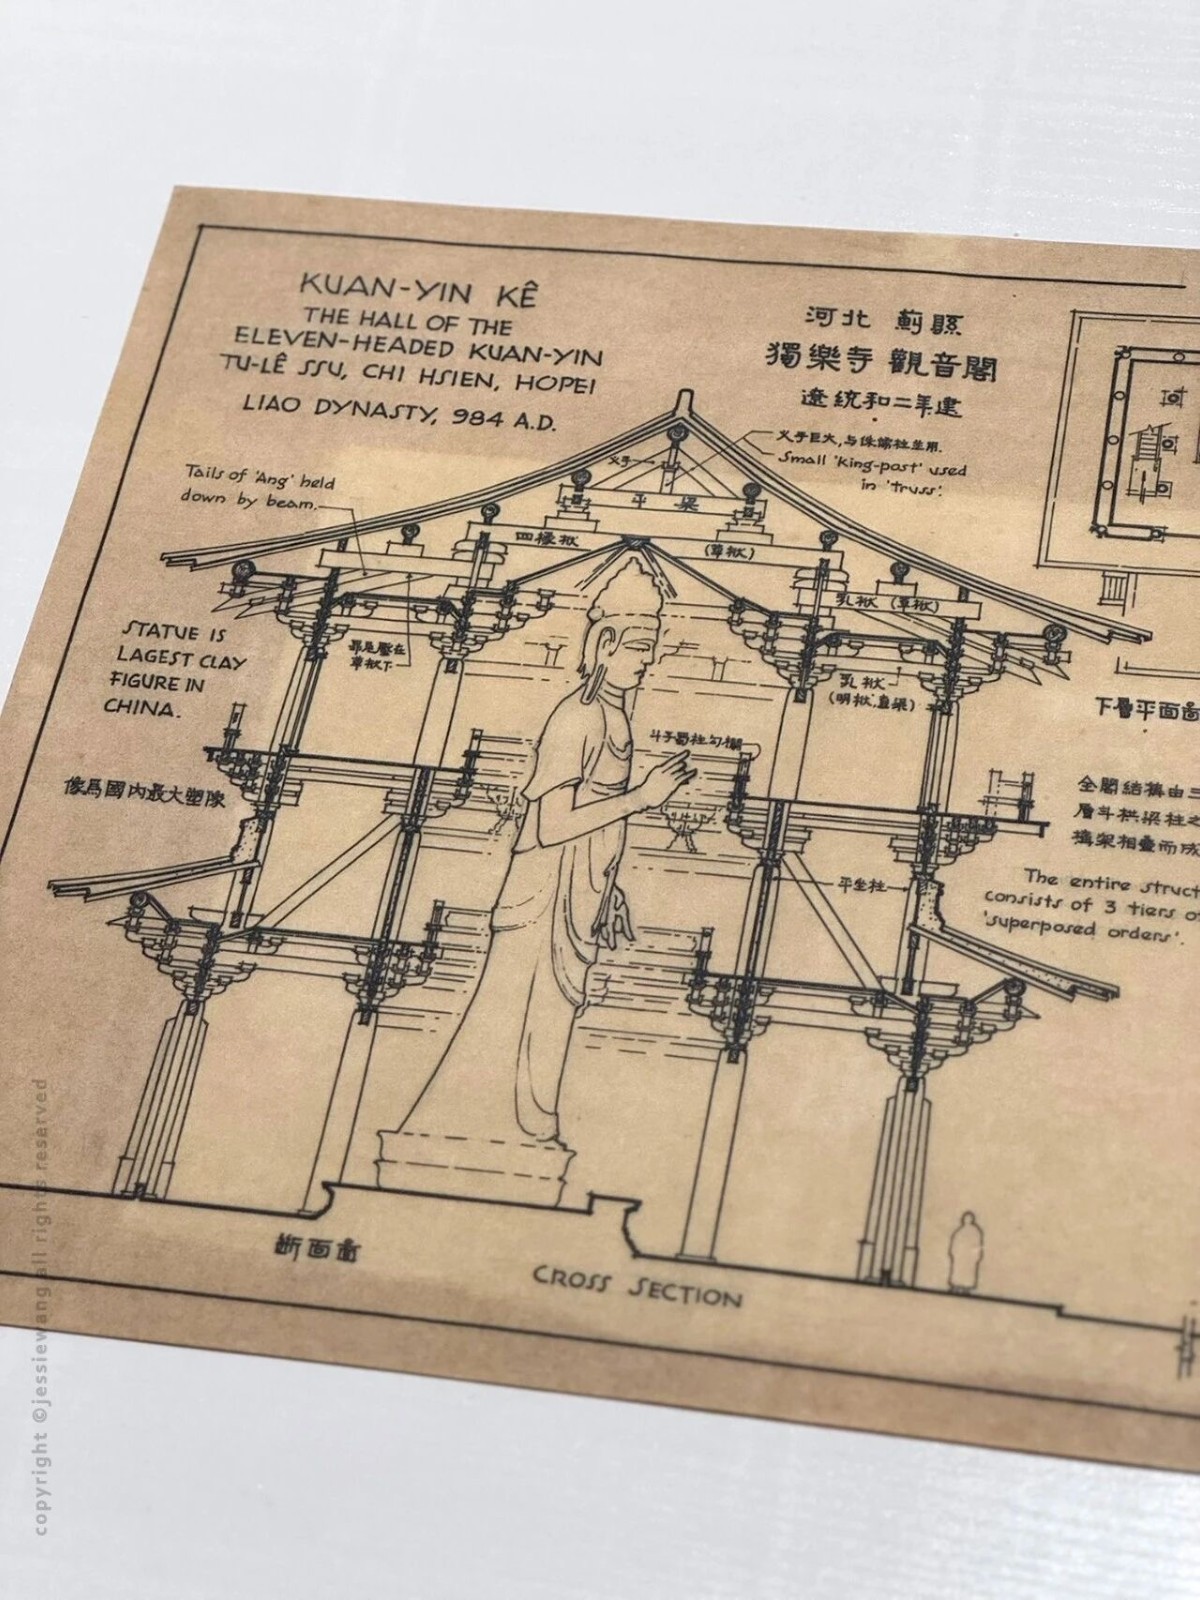 KUAN-YIN KÊ
THE HALL OF THE
ELEVEN-HEADED KUAN-YIN
TU-LÊ SSU, CHI HSIEN, HOPEI
LIAO DYNASTY, 984 A.D.
河北 薊縣
獨樂寺 觀音閣
遼統和二年建
Tails of 'Ang' held
down by beam.
叉手巨大,与侏儒柱並用.
Small 'king-post' used
in 'truss'.
叉手
平 梁
四椽栿
(草栿)
乳栿 (草栿)
昂尾壓在
草栿下
乳栿
(明栿,直梁)
STATUE IS
LAGEST CLAY
FIGURE IN
CHINA.
像爲國內最大塑像
斗子蜀柱勾欄
平坐柱
下層平面圖
全閣結構由三
層斗栱梁柱之
構架相疊而成
The entire struct
consists of 3 tiers of
'superposed orders'.
断面圖
CROSS SECTION
copyright ©jessiewang all rights reserved